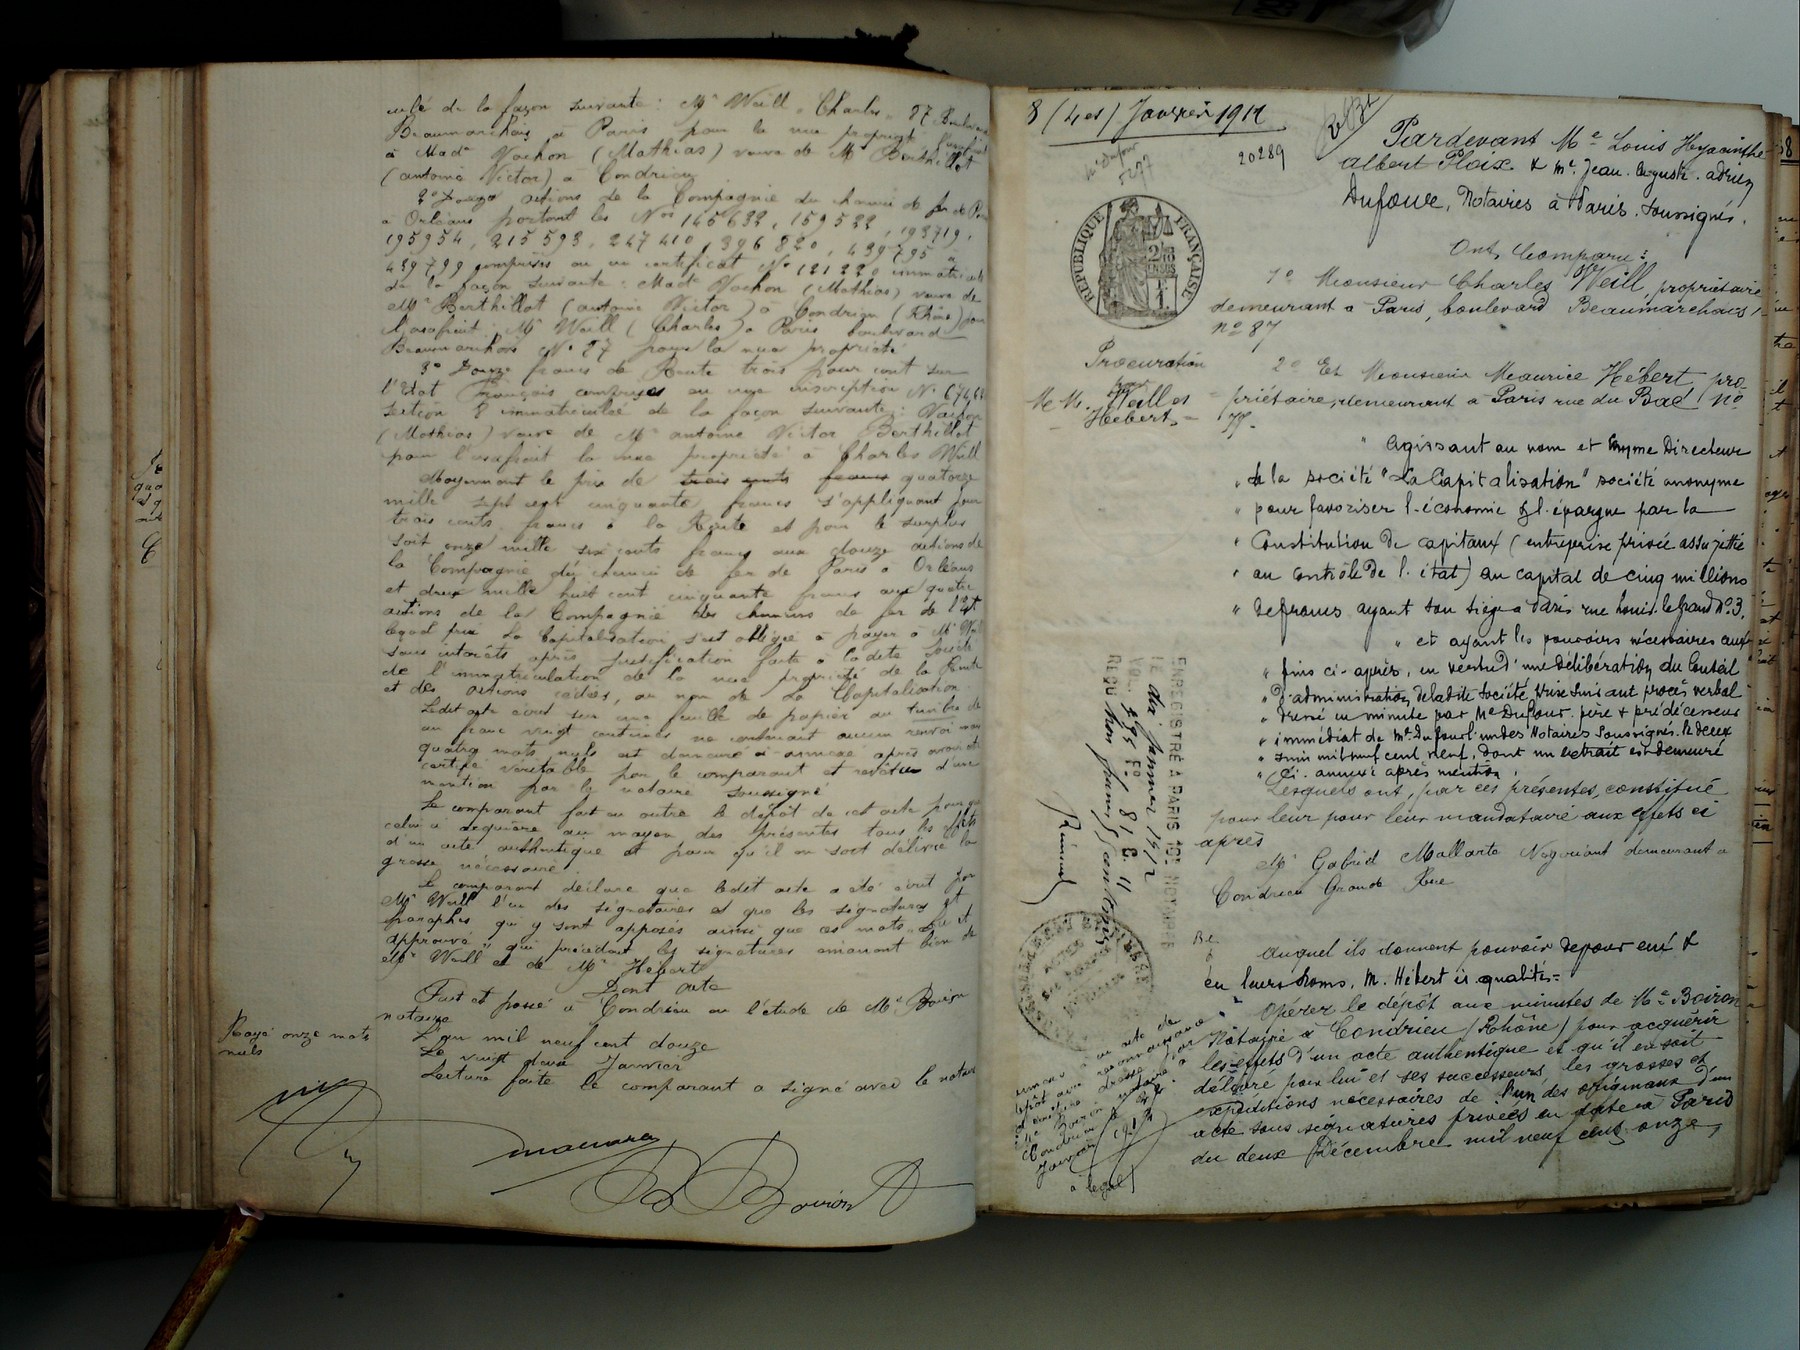 culé de la façon suivante : Mr Weill Charles 87 Boulevard
Beaumarchais à Paris pour la nue propriété l'usufruit
à Made Vachon (Mathias) veuve de Mr Berthillot
(antoine Victor) à Condrieu
2° Douze actions de la Compagnie du chemin de fer de Paris
à Orléans portant les Nos 145632, 159522, 193719,
195954, 215593, 247410, 396820, 439795 à
439799 comprises en un certificat No 121220 immatriculé
de la façon suivante : Made Vachon (Mathias) veuve de
Mr Berthillot (antoine Victor) à Condrieu (Rhône) pour
l'usufruit ; Mr Weill (Charles) à Paris boulevard
Beaumarchais No 87 pour la nue propriété
3° Douze francs de Rente trois pour cent sur
l'Etat Français comprises en une inscription No
section 8 immatriculée de la façon suivante : Vachon
(Mathias) veuve de Mr antoine Victor Berthillot
pour l'usufruit la nue propriété à Charles Weill
Moyennant le prix de trois cents francs quatorze
mille sept cent cinquante francs s'appliquant pour
trois cents francs à la Rente et pour le surplus
soit onze mille six cents francs aux douze actions de
la Compagnie des chemin de fer de Paris à Orléans
et deux mille huit cent cinquante francs aux quatre
actions de la Compagnie des chemins de fer de l'Est
lequel prix La Capitalisation s'est obligée à payer à Mr Weill
sans intérêts après justification faite à ladite Société
de l'immatriculation de la nue propriété de la Rente
et des actions cédées, au nom de La Capitalisation.
Ledit acte écrit sur une feuille de papier au timbre de
un franc vingt centimes ne contenant aucun renvoi mais
quatre mots nuls est demeuré ci-annexé après avoir été
certifié véritable par le comparant et revêtu d'une
mention par le notaire soussigné
Le comparant fait en outre le dépôt de cet acte pour que
celui-ci acquière au moyen des présentes tous les effets
d'un acte authentique et pour qu'il en soit délivré la
grosse nécessaire.
Le comparant déclare que ledit acte a été écrit par
Mr Weill l'un des signataires et que les signatures et
paraphes qui y sont apposés ainsi que ces mots "Lu et
approuvé" qui précèdent les signatures émanent bien de
Mr Weill et de Mr Hébert
Dont acte
Fait et passé à Condrieu en l'étude de Me Boiron
notaire
L'an mil neuf cent douze
Le vingt deux Janvier
Lecture faite le comparant a signé avec le notaire
Rayé onze mots
nuls
Boiron
8 (4 es) Janvier 1912
20289
Me Dufour
5277
RÉPUBLIQUE FRANÇAISE
Pardevant Me Louis Hyacinthe
albert Ploix & Me Jean Auguste adrien
Dufour, Notaires à Paris soussignés.
Ont Comparu :
1° Monsieur Charles Weill, propriétaire
demeurant à Paris, boulevard Beaumarchais
no 87
Procuration
par
M.M. Weill et
Hébert
2° Et Monsieur Maurice Hébert, pro-
priétaire, demeurant à Paris rue du Bac no
77.
" agissant au nom et comme Directeur
" de la société "La Capitalisation" société anonyme
" pour favoriser l'économie & l'épargne par la
" Constitution de capitaux (entreprise privée assujettie
" au contrôle de l'état) au capital de cinq millions
" de francs ayant son siège à Paris rue Louis le Grand No 3,
" et ayant les pouvoirs nécessaires aux
" fins ci-après, en vertu d'une délibération du Conseil
" d'administration de ladite Société prise suivant procès verbal
" dressé en minute par Me Dufour père & prédécesseur
" immédiat de Me Dufour l'un des Notaires soussignés le deux
" juin mil neuf cent neuf, dont un extrait est demeuré
" ci-annexé après mention.
Lesquels ont, par ces présentes, constitué
pour leur pour leur mandataire aux effets ci
après
Mr Gabriel Mallarte Négociant demeurant à
Condrieu Grande Rue
Auquel ils donnent pouvoir de pour eux &
en leurs noms, M. Hébert ès qualités =
Opérer le dépôt aux minutes de Me Boiron
Notaire à Condrieu (Rhône) pour acquérir
les effets d'un acte authentique et qu'il en soit
délivré par lui et ses successeurs les grosses et
expéditions nécessaires de l'un des originaux d'un
acte sous signatures privées en date à Paris
du deux Décembre mil neuf cent onze,
ENREGISTRÉ A PARIS 10e NOTAIRES
Le dix janvier 1912
Vol. 595 Fo 81 C. 11
REÇU trois francs 75 centimes